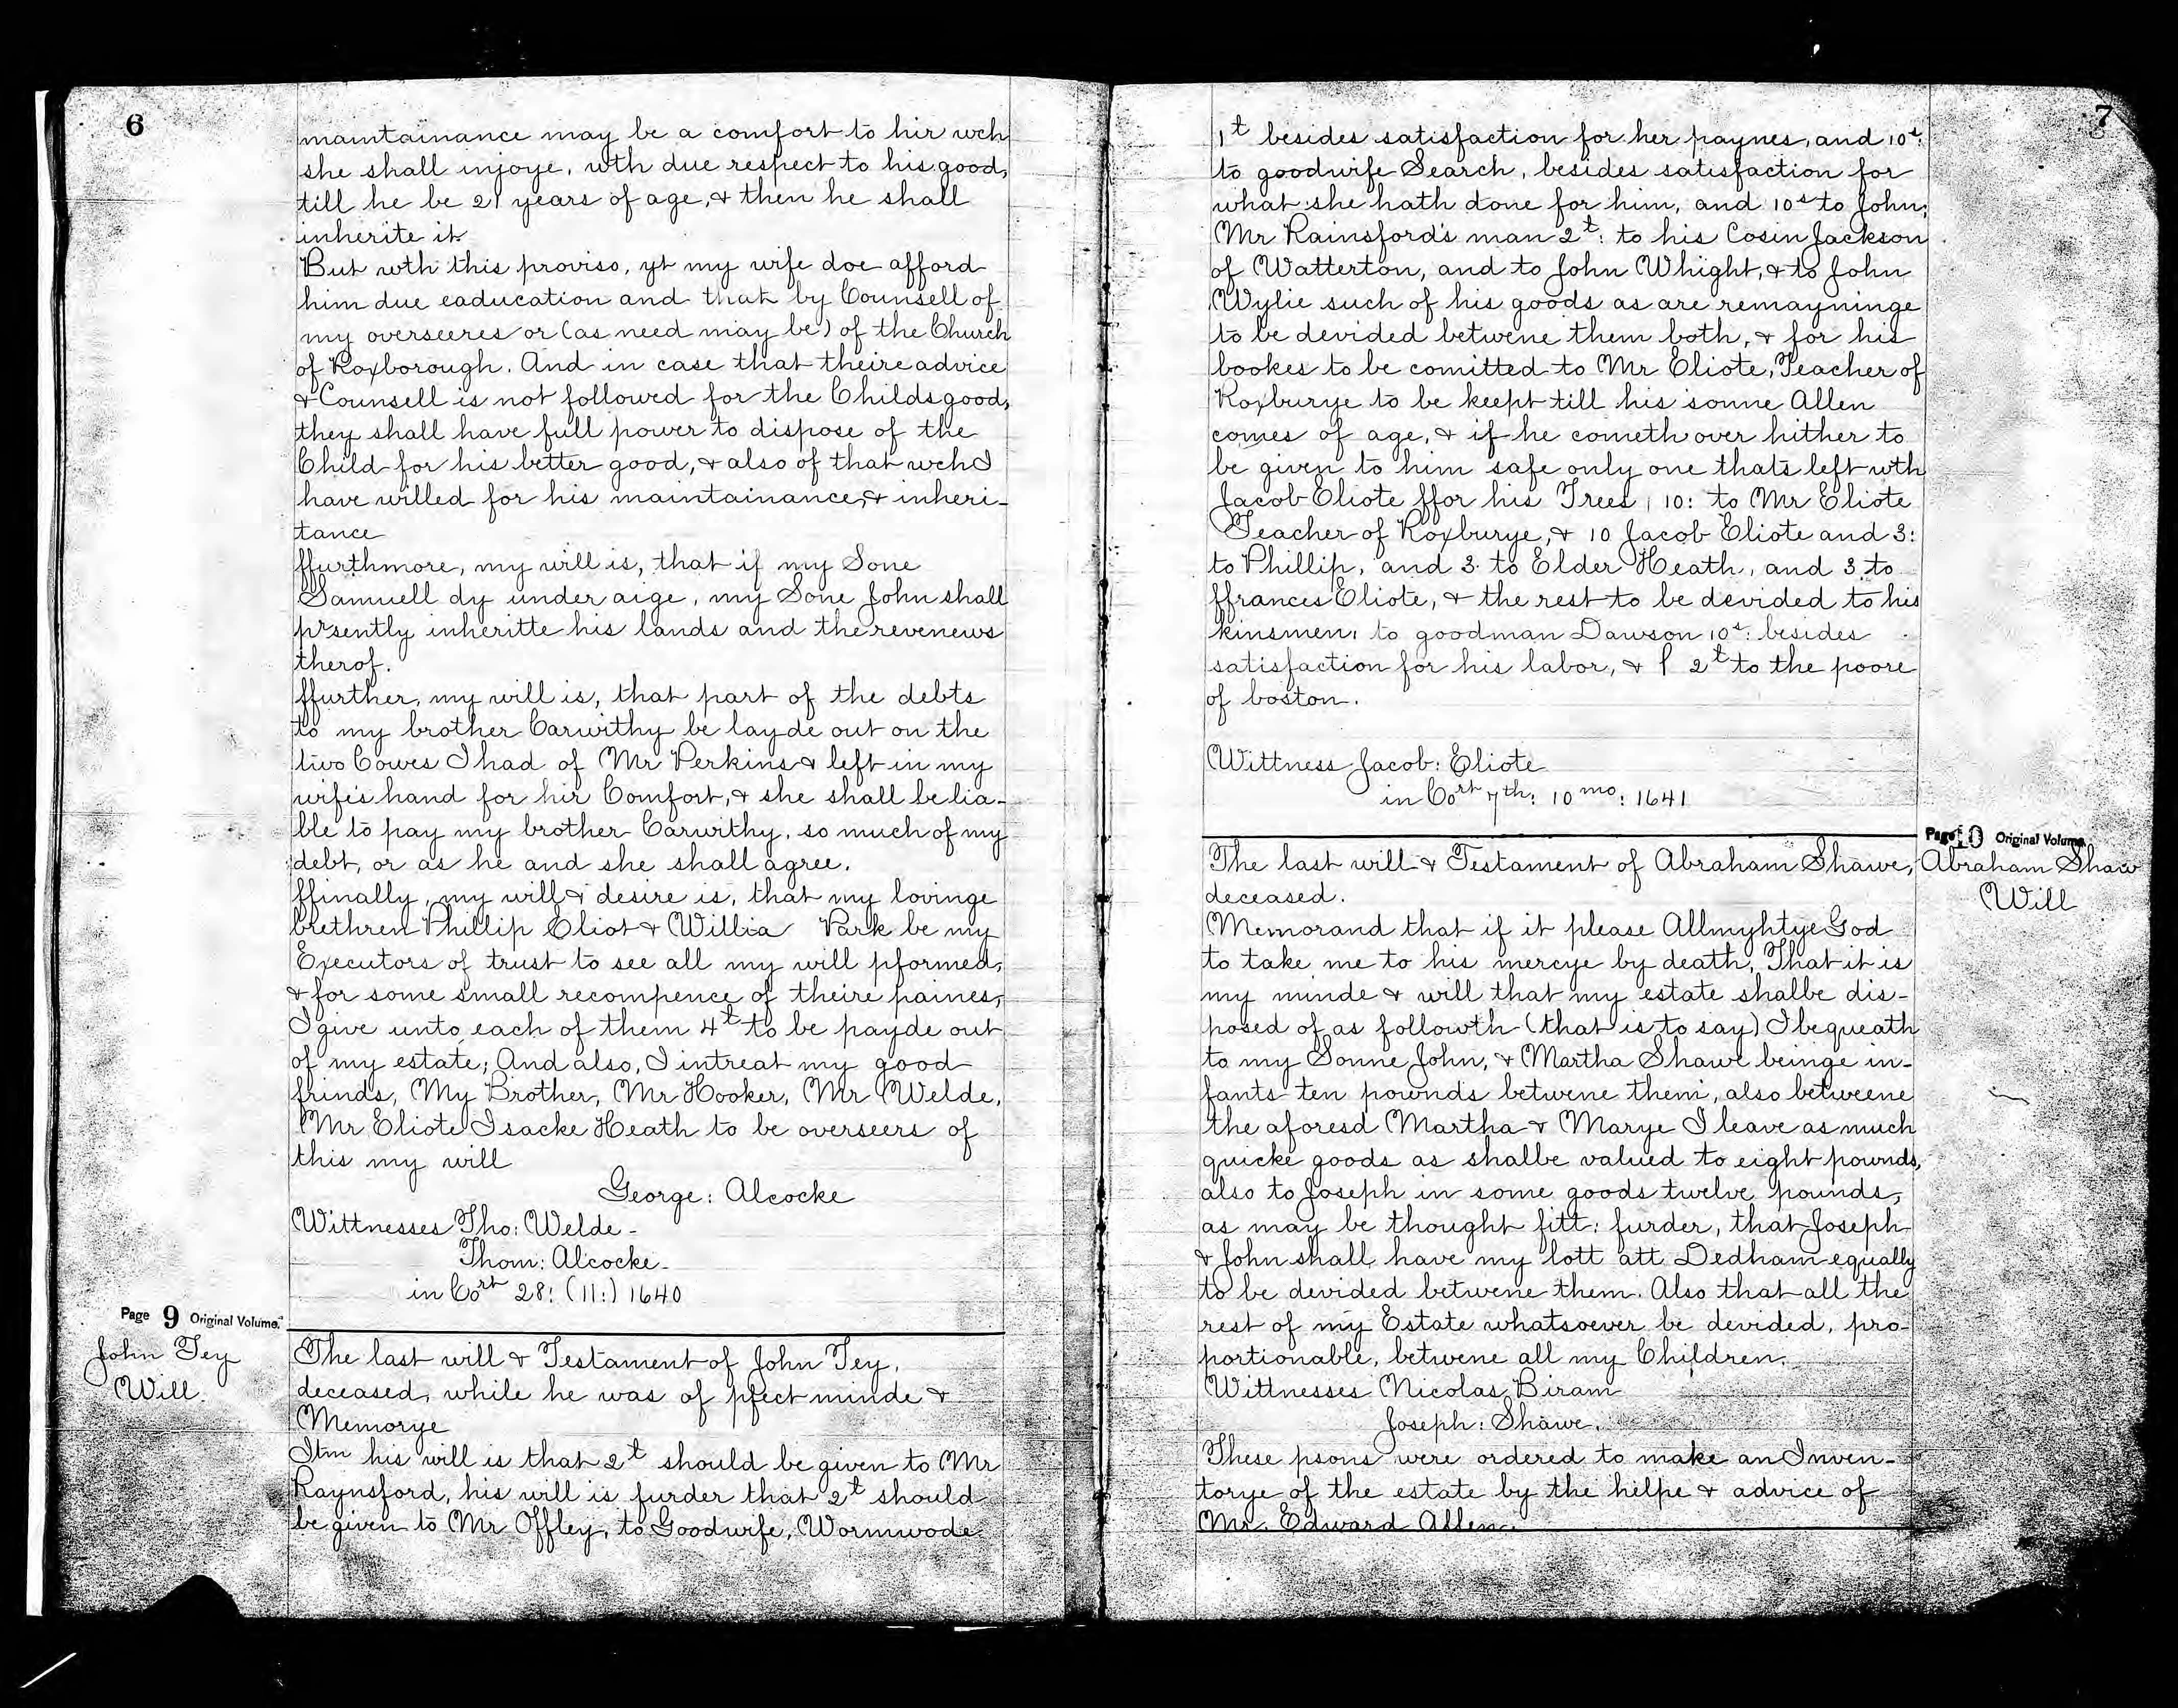 6
maintainance may be a comfort to hir wch
she shall injoye, wth due respect to his good,
till he be 21 years of age, & then he shall
inherite it
But wth this proviso, yt my wife doe afford
him due eaducation and that by Counsell of
my overseeres or (as need may be) of the Church
of Roxborough. And in case that theire advice
& Counsell is not followed for the Childs good,
they shall have full power to dispose of the
Child for his better good, & also of that wch I
have willed for his maintainance, & inheri-
tance
ffurthmore, my will is, that if my Sone
Samuell dy under aige, my Sone John shall
prsently inheritte his lands and the revenews
therof.
ffurther, my will is, that part of the debts
to my brother Carwithy be layde out on the
two Cowes I had of Mr Perkins & left in my
wife's hand for hir Comfort, & she shall be lia-
ble to pay my brother Carwithy, so much of my
debt, or as he and she shall agree.
ffinally, my will & desire is, that my lovinge
brethren Phillip Eliot & Willia Park be my
Executors of trust to see all my will pformed,
& for some small recompence of theire paines,
I give unto each of them 4t to be payde out
of my estate; And also, I intreat my good
frinds, My Brother, Mr Hooker, Mr Welde,
Mr Eliote Isacke Heath to be overseers of
this my will
George: Alcocke
Wittnesses Tho: Welde-
Thom: Alcocke-
in Cort 28: (11:) 1640
Page 9 Original Volume.
John Tey
Will.
The last will & Testament of John Tey,
deceased, while he was of pfect minde &
Memorye
Itm his will is that 2t should be given to Mr
Raynsford, his will is furder that 2t should
be given to Mr Offley, to Goodwife, Wormwode
7
1t besides satisfaction for her paynes, and 10s:
to goodwife Search, besides satisfaction for
what she hath done for him, and 10s to John;
Mr Rainsford's man 2t: to his Cosin Jackson
of Watterton, and to John Whight, & to John
Wylie such of his goods as are remayninge
to be devided betwene them both, & for his
bookes to be comitted to Mr Eliote, Teacher of
Roxburye to be keept till his sonne Allen
comes of age, & if he cometh over hither to
be given to him safe only one thats left wth
Jacob Eliote ffor his Trees, 10: to Mr Eliote
Teacher of Roxburye, & 10 Jacob Eliote and 3:
to Phillip, and 3 to Elder Heath, and 3 to
ffrances Eliote, & the rest to be devided to his
kinsmen, to goodman Dawson 10s: besides
satisfaction for his labor, & 2t to the poore
of boston.
Wittness Jacob: Eliote
in Cort 7th: 10 mo: 1641
Page 10 Original Volume.
Abraham Shaw
Will
The last will & Testament of Abraham Shawe,
deceased.
Memorand that if it please Allmyhtye God
to take me to his mercye by death, That it is
my minde & will that my estate shalbe dis-
posed of as followth (that is to say) I bequeath
to my Sonne John, & Martha Shawe beinge in-
fants ten pownds betwene them, also betweene
the aforesd Martha & Marye I leave as much
quicke goods as shalbe valued to eight pownds,
also to Joseph in some goods twelve pounds,
as may be thought fitt: furder, that Joseph
& John shall have my lott att Dedham equally
to be devided betwene them. Also that all the
rest of my Estate whatsoever be devided, pro-
portionable, betwene all my Children.
Wittnesses Nicolas Biram
Joseph: Shawe.
These psons were ordered to make an Inven-
torye of the estate by the helpe & advice of
Mr. Edward Allen.